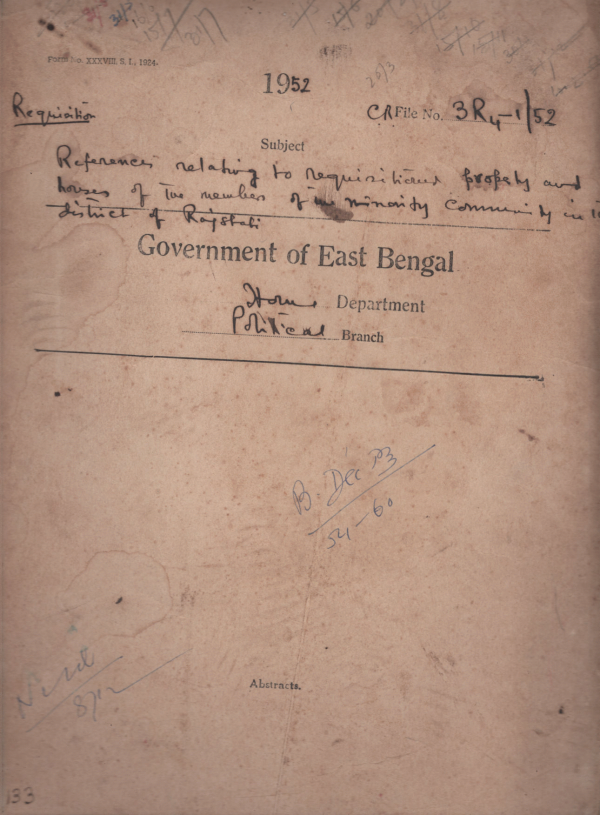 Form No. XXXVIII. S. I., 1924.
20/3
1952
Requisition
CR File No. 3R4-1/52
Subject
References relating to requisitioned property and
houses of the members of the minority community in the
district of Rajshahi
Government of East Bengal
Home Department
Political Branch
B. Dec 53
54-60
8/12
Abstracts.
133